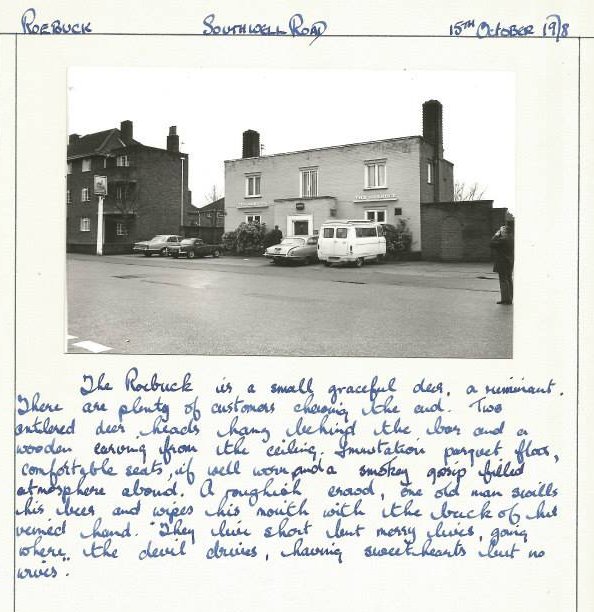 ROEBUCK SOUTHWELL ROAD 15TH OCTOBER 1978
The Roebuck is a small graceful deer, a ruminant.
There are plenty of customers chewing the cud. Two
antlered deer heads hang behind the bar and a
wooden carving from the ceiling. Immitation parquet floor,
comfortable seats, if well worn and a smokey gossip filled
atmosphere abound. A roughish crowd, one old man swills
his beer and wipes his mouth with the back of his
veined hand. "They live short but merry lives, going
where the devil drives, having sweethearts but no
wives".